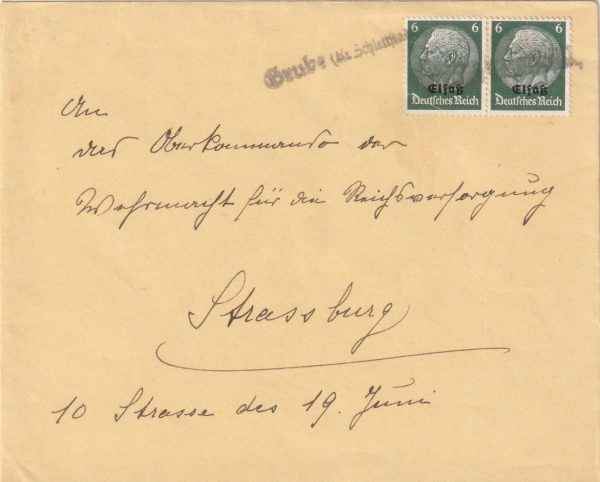 Grube (bz. Schlettstadt)
6 6 6 6
Elsaß Elsaß
Deutsches Reich Deutsches Reich
An
das Oberkommando der
Wehrmacht für die Reichsversorgung
Strassburg
10 Strasse des 19. Juni